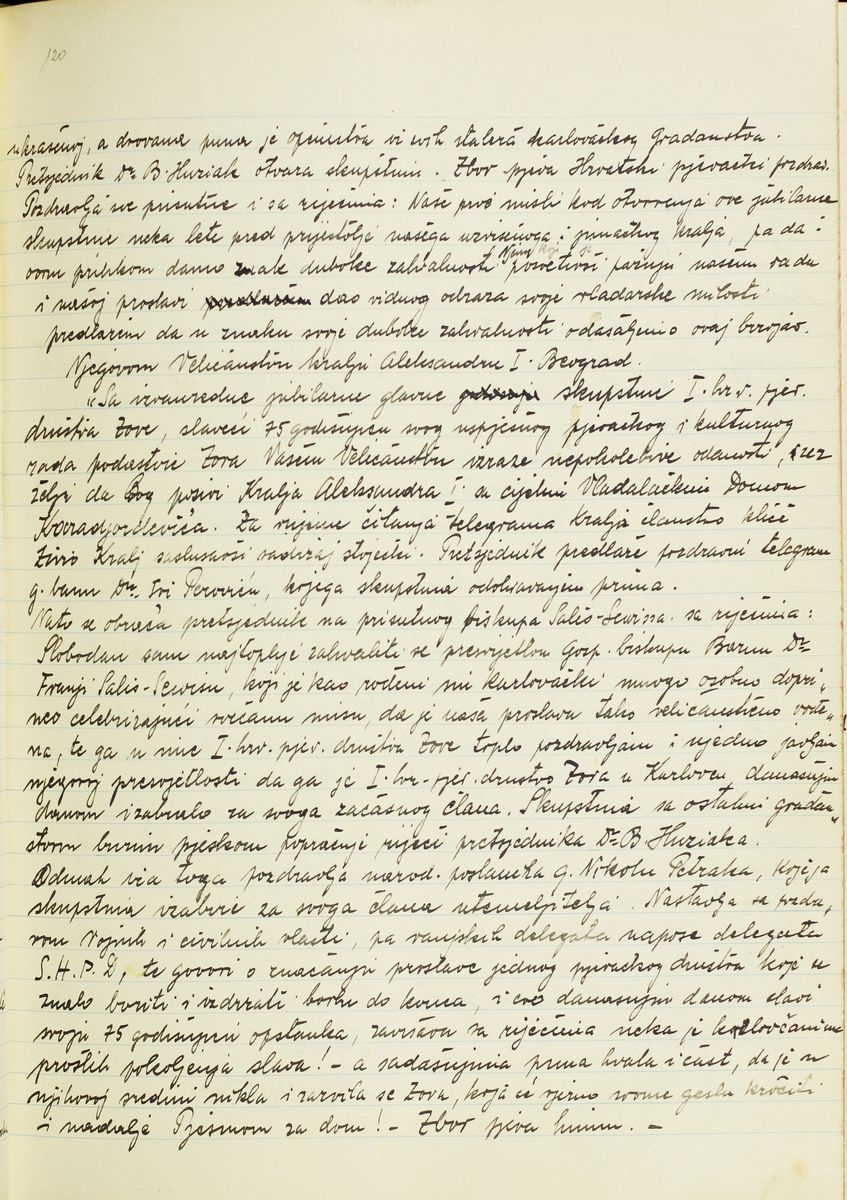 120
ukrašenoj, a dvorana puna je općinstva iz svih staleža karlovačkog građanstva.
Pretsjednik Dr. B. Huziak otvara skupštinu. Zbor pjeva Hrvatski pjevački pozdrav.
Pozdravlja sve prisutne i sa riječima: Naše prve misli kod otvorenja ove jubilarne
skupštine neka lete pred prijestolje našega uzvišenoga i junačkog kralja, pa da i
ovom prilikom damo znak duboke zahvalnosti posvetivši pažnju našem radu
i našoj proslavi dao vidnog odraza svoje vladarske milosti
predlažem da u znaku svoje duboke zahvalnosti odašaljemo ovaj brzojav.
Njegovom Veličanstvu kralju Aleksandru I. Beograd.
"Sa izvanredne jubilarne glavne skupštine I. hrv. pjev.
društva Zore, slaveći 75 godišnjicu svog uspješnog pjevačkog i kulturnog
rada podastire Zora Vašem Veličanstvu izraze nepokolebive odanosti, uz
želju da Bog poživi Kralja Aleksandra I. sa cijelim Vladalačkim Domom
Karadjordjevića. Za vrijeme čitanja telegrama Kralja članstvo kliče
živio Kralj saslušavši sadržaj stojećki. Pretsjednik predlaže pozdravni telegram
g. banu Dru. Ivi Peroviću, kojega skupština odobravanjem prima.
Nato se obraća pretsjednik na prisutnog biskupa Salis-Sewisa sa riječima:
Slobodan sam najtoplije zahvaliti se presvijetlom Gosp. biskupu Barunu Dr.
Franji Salis-Sewisu, koji je kao rođeni mi karlovački mnogo osobno dopri„
neo celebrirajući svečanu misu, da je naša proslava tako veličanstveno vođe„
na, te ga u ime I. hrv. pjev. društva Zore toplo pozdravljam i ujedno javljam
njegovoj presvjetlosti da ga je I. hrv. pjev. društvo Zora u Karlovcu, današnjim
danom izabralo za svoga začasnog člana. Skupština sa ostalim građan„
stvom burnim pljeskom popraćuje riječi pretsjednika Dr. B. Huziaka.
Odmah iza toga pozdravlja narod. poslanika g. Nikolu Petraka, kojega
skupština izabire za svoga člana utemeljitelja. Nastavlja sa pozdra„
vom vojnih i civilnih vlasti, pa vanjskih delegata napose delegata
S.H.P.D, te govori o značenju proslave jednog pjevačkog društva koje se
znalo boriti i izdržati borbu do konca, i evo današnjim danom slavi
svoju 75 godišnjicu opstanka, završava sa riječima neka je karlovčanima
prošlih pokoljenja slava! – a sadašnjima puna hvala i čast, da je u
njihovoj sredini nikla i razvila se Zora, koja će vjerno svome geslu kročiti
– i nadalje Pjesmom za dom! – Zbor pjeva himnu. –